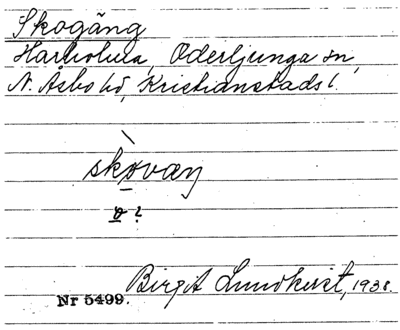 Skogäng
Harholma, Oderljunga sn,
N. Åsbo hd, Kristianstads l.
skovæŋ
o ?
Birgit Lundkvist, 1938.
Nr 5499.